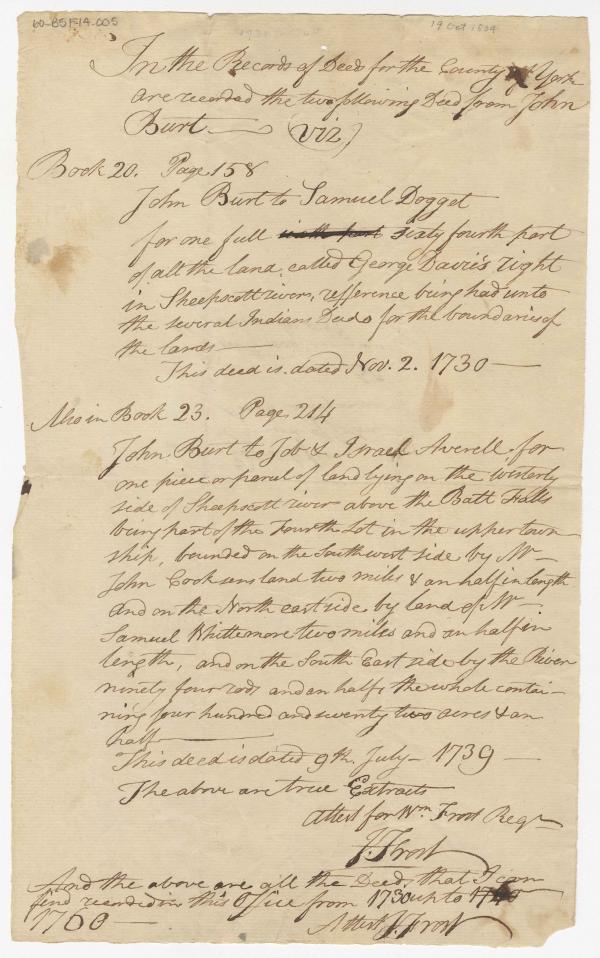 60-B5F14.005
19 Oct 1804
In the Records of Deeds for the County of York
are recorded the two following Deed from John
Burt — (viz)
Book 20. Page 158
John Burt to Samuel Dogget
for one full sixty fourth part
of all the land called George Davie's right
in Sheepscott river, refference being had unto
the several Indians Deeds for the boundaries of
the lands —
This deed is dated Nov. 2. 1730 —
Also in Book 23. Page 214
John Burt to Job & Israel Averell for
one piece or parcel of land lying on the westerly
side of Sheepscott river above the Batt Falls
being part of the Fourth Lot in the upper town
ship, bounded on the Southwest side by Mr
John Cooksons land two miles & an half in length
and on the North east side by land of Mr
Samuel Whittemore two miles and an half in
length, and on the South East side by the River
ninety four rods and an half, the whole contai-
ning four hundred and seventy two acres & an
half —
This deed is dated 9th July — 1739 —
The above are true Extracts
Attest for Wm Frost Regr
J. Frost
And the above are all the Deeds that I can
find recorded in this Office from 1730 up to
1760 —
Attest J. Frost